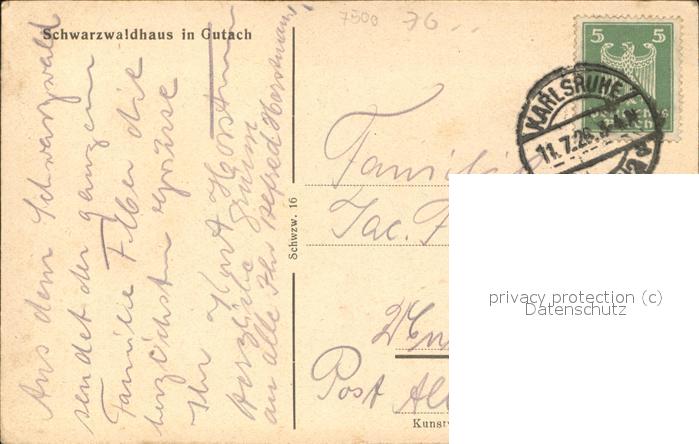 Schwarzwaldhaus in Gutach
7500 76
Aus dem Schwarzwald
sendet der ganzen
Familie Filber die
herzlichsten Grüsse
Ihr Kurt Horstmann
Herzliche Grüsse
an alle Ihr Alfred Horstmann
Schwzw. 16
5 5
Deutsches
Reich
KARLSRUHE
11.7.26
Familie
Jac. F
Post Al
Kunstv
privacy protection (c)
Datenschutz